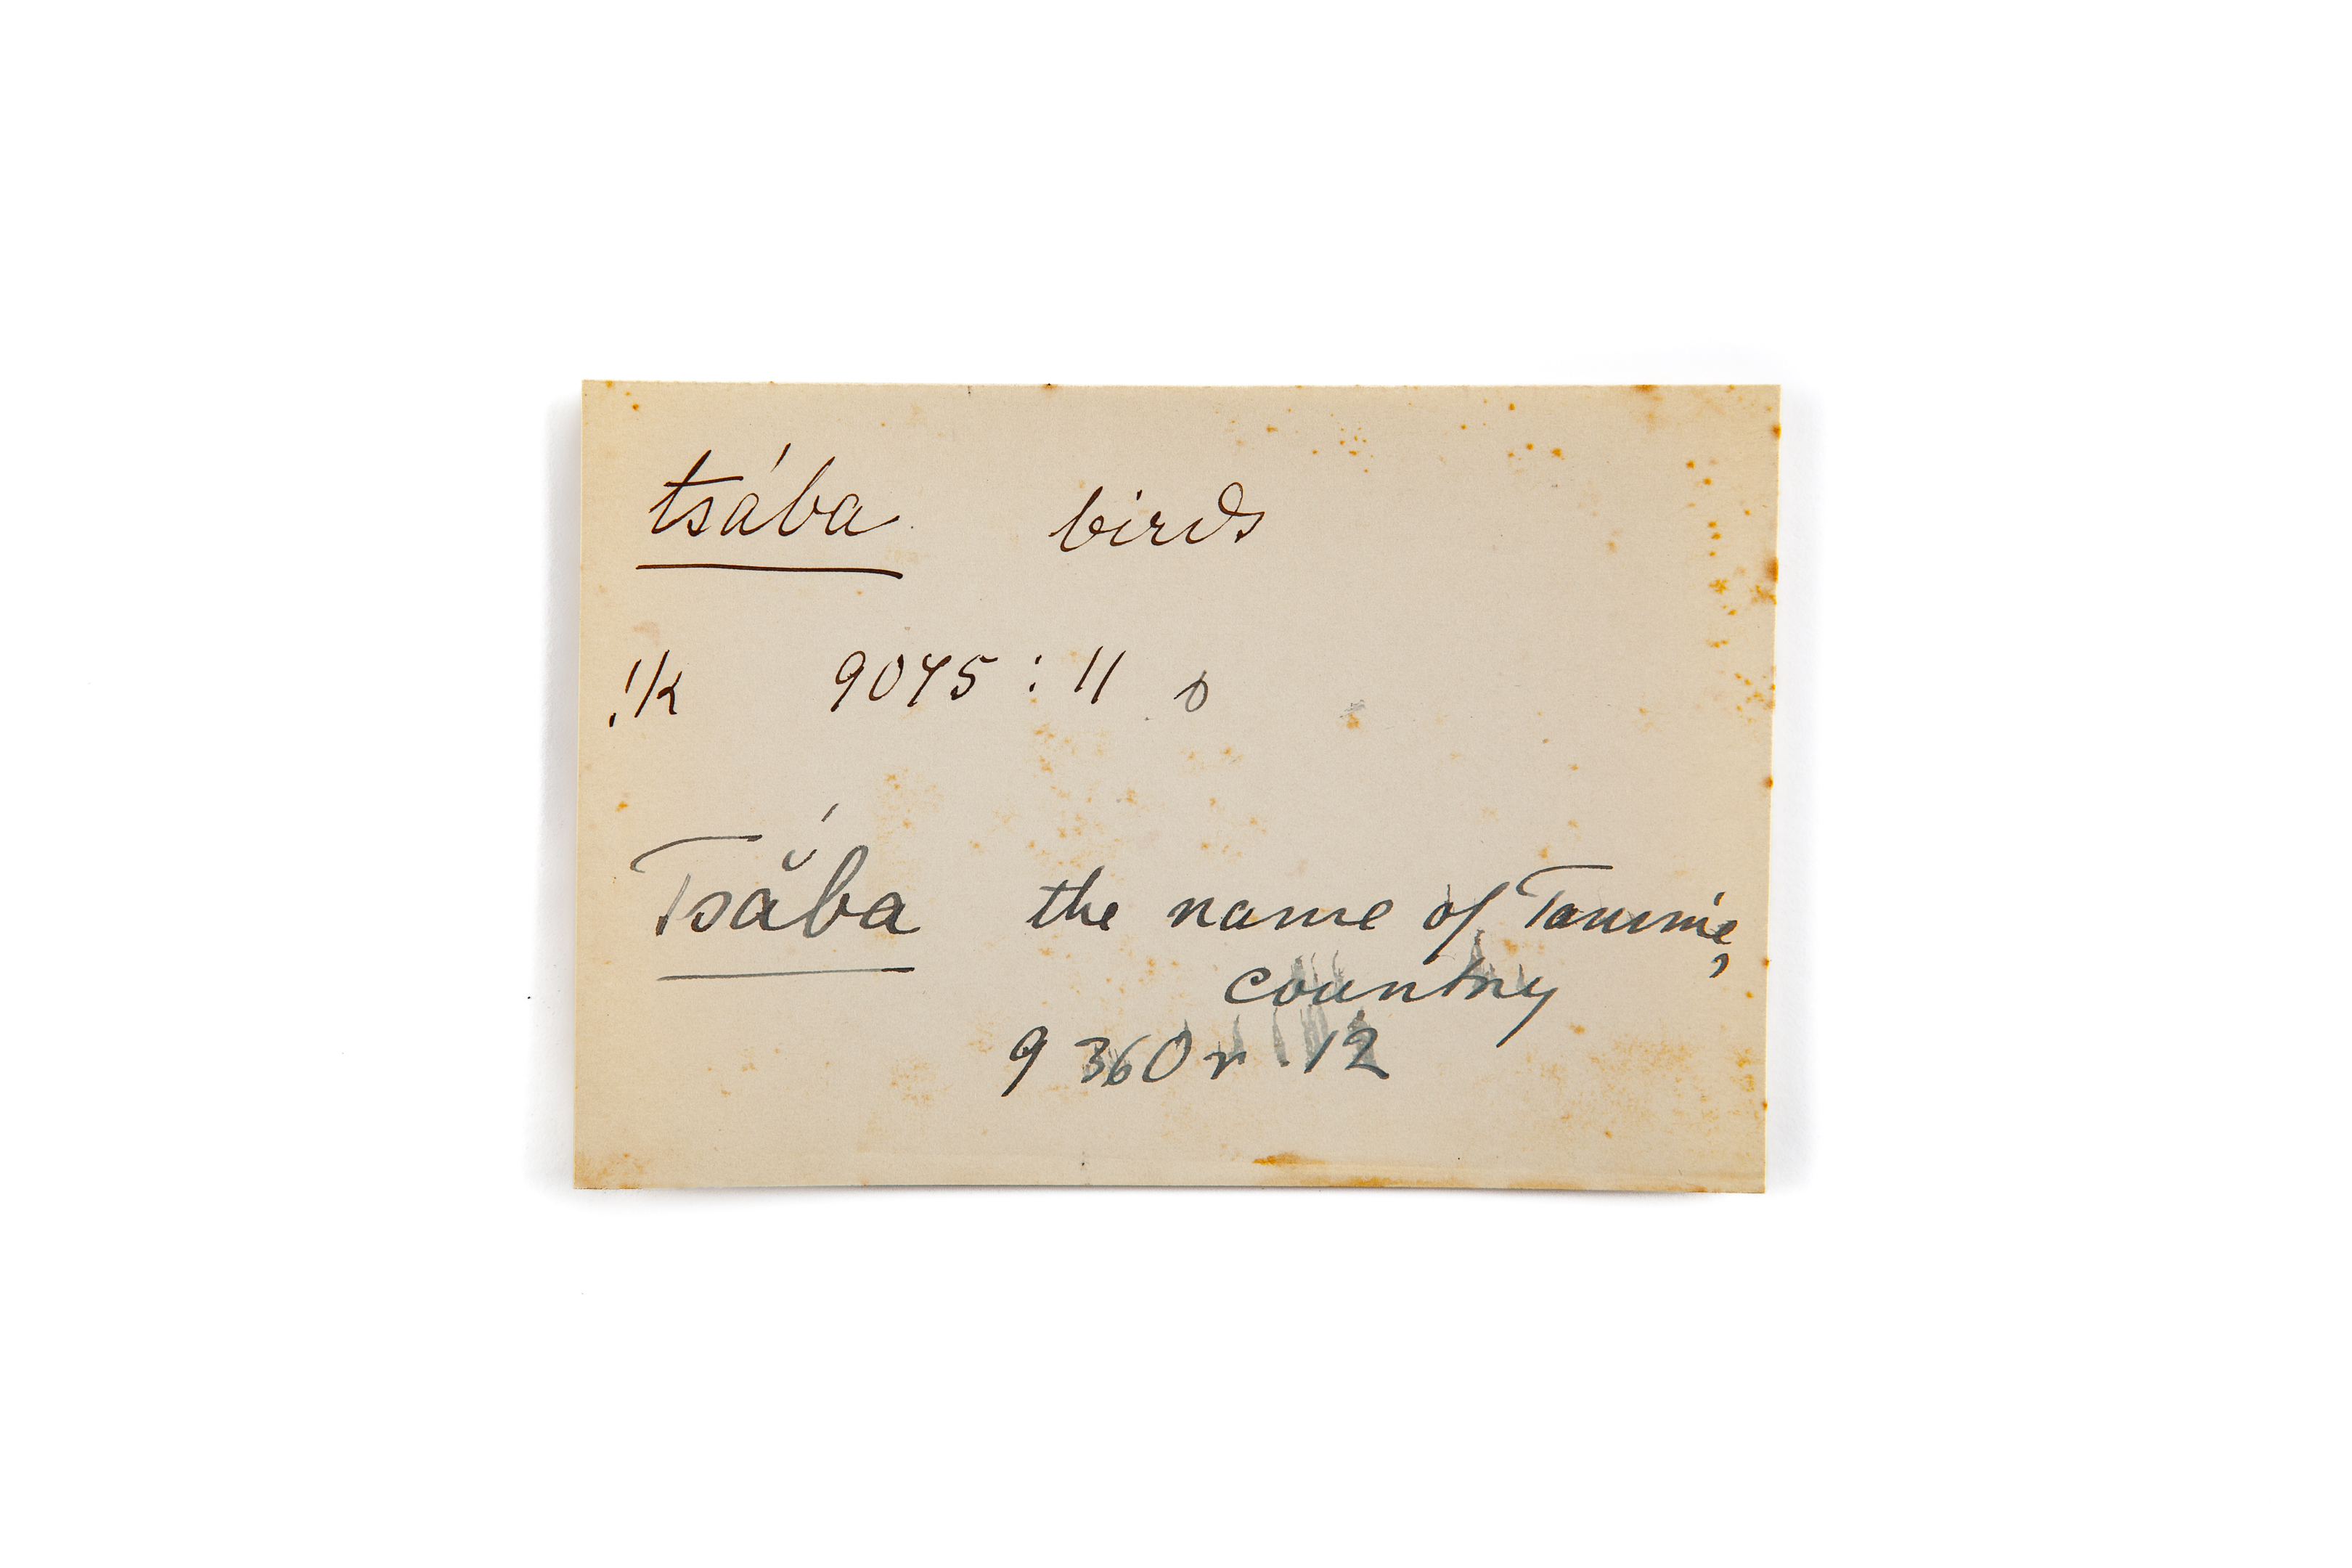 tsába birds
!k 9075 : 11 o
Tsắba the name of Tamme,
country
9 360 r. 12